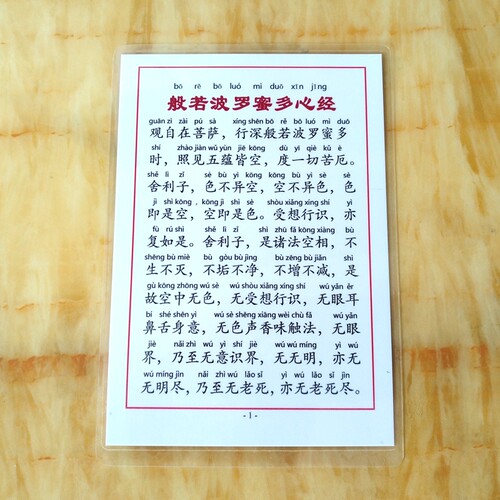 bō rě bō luó mì duō xīn jīng
般若波罗蜜多心经
guān zì zài pú sà xíng shēn bō rě bō luó mì duō
观自在菩萨，行深般若波罗蜜多
shí zhào jiàn wǔ yùn jiē kōng dù yī qiè kǔ è
时，照见五蕴皆空，度一切苦厄。
shě lì zǐ sè bù yì kōng kōng bù yì sè sè
舍利子，色不异空，空不异色，色
jì shì kōng , kōng jì shì sè shòu xiǎng xíng shí yì
即是空，空即是色。受想行识，亦
fù rú shì shě lì zǐ shì zhū fǎ kōng xiàng bù
复如是。舍利子，是诸法空相，不
shēng bù miè bù gòu bù jìng bù zēng bù jiǎn shì
生不灭，不垢不净，不增不减，是
gù kōng zhōng wú sè wú shòu xiǎng xíng shí wú yǎn ěr
故空中无色，无受想行识，无眼耳
bí shé shēn yì wú sè shēng xiàng wèi chù fǎ wú yǎn
鼻舌身意，无色声香味触法，无眼
jiè nǎi zhì wú yì shí jiè wú wú míng yì wú
界，乃至无意识界，无无明，亦无
wú míng jìn nǎi zhì wú lǎo sǐ yì wú lǎo sǐ jìn
无明尽，乃至无老死，亦无老死尽。
- 1 -